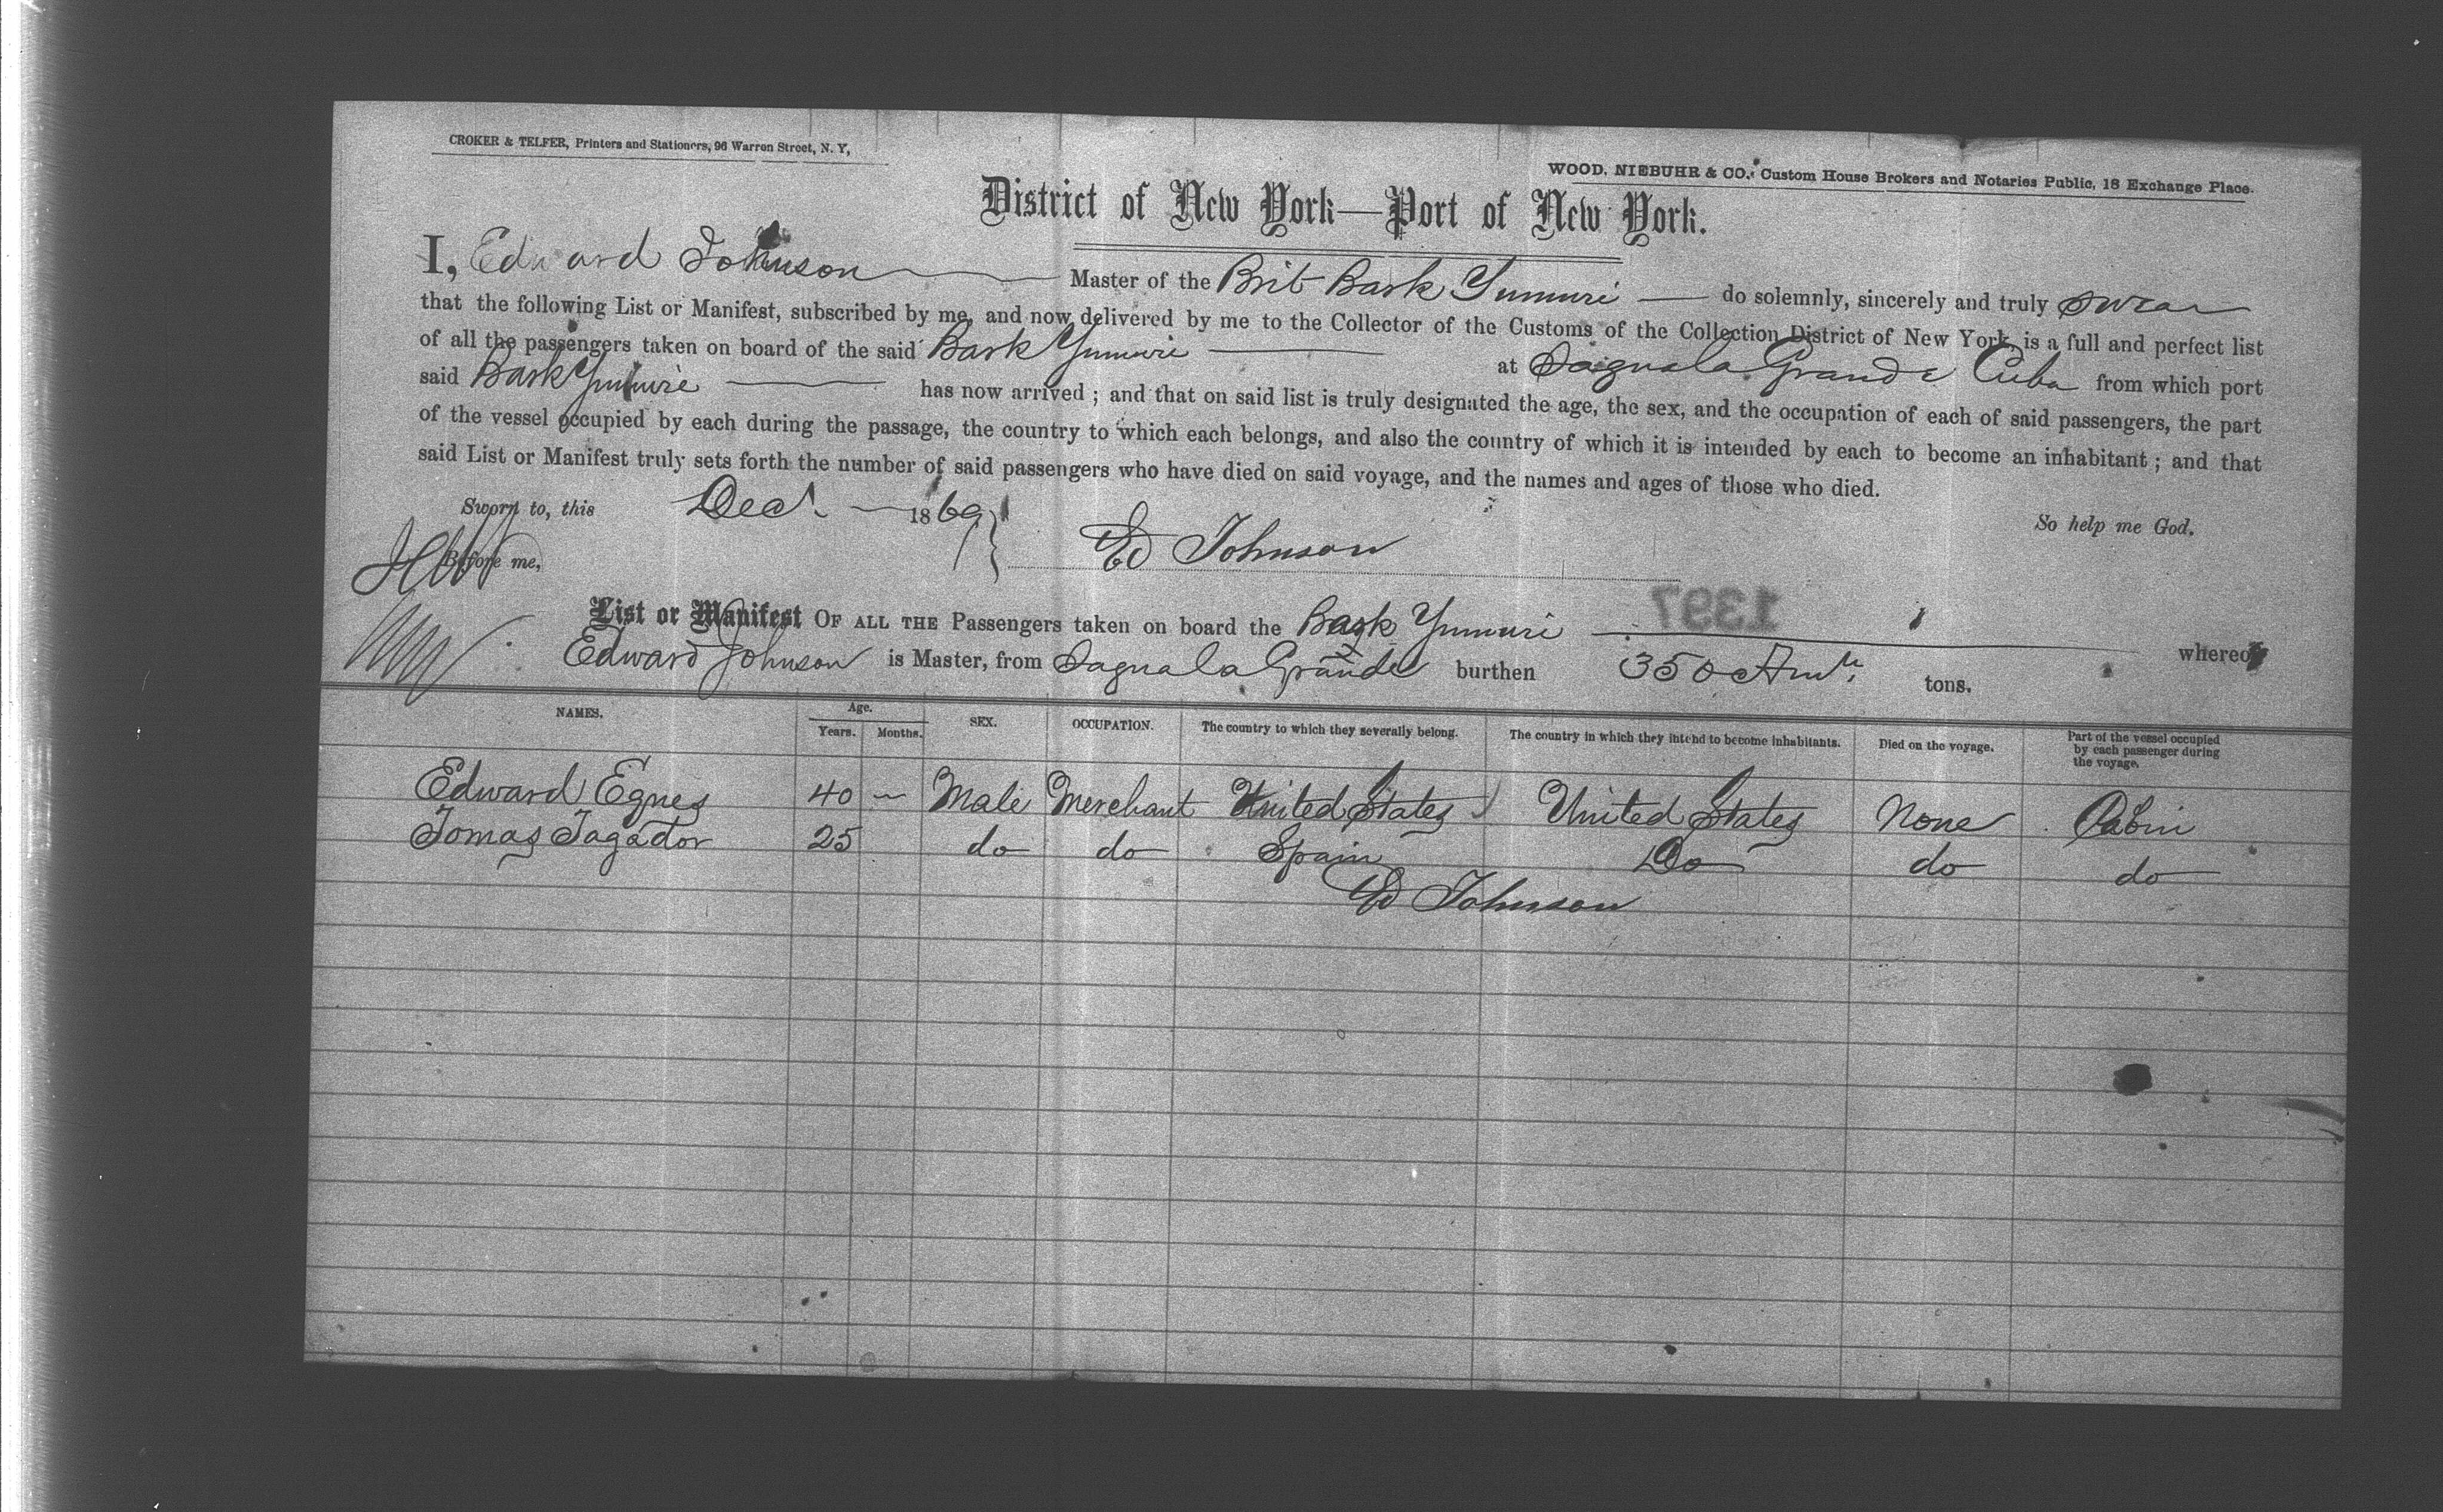 CROKER & TELFER, Printers and Stationers, 96 Warren Street, N. Y,
WOOD, NIEBUHR & CO. Custom House Brokers and Notaries Public, 18 Exchange Place.
District of New York—Port of New York.
I, Edward Johnson Master of the Brit Bark Yumuri do solemnly, sincerely and truly swear
that the following List or Manifest, subscribed by me, and now delivered by me to the Collector of the Customs of the Collection District of New York, is a full and perfect list
of all the passengers taken on board of the said Bark Yumuri at Sagua la Grande Cuba from which port
said Bark Yumuri has now arrived ; and that on said list is truly designated the age, the sex, and the occupation of each of said passengers, the part
of the vessel occupied by each during the passage, the country to which each belongs, and also the country of which it is intended by each to become an inhabitant ; and that
said List or Manifest truly sets forth the number of said passengers who have died on said voyage, and the names and ages of those who died.
So help me God.
Sworn to, this Dec. 1869
Before me, Ed Johnson
1397
List or Manifest OF ALL THE Passengers taken on board the Bark Yumuri whereof
Edward Johnson is Master, from Sagua la Grande burthen 350 tons.
NAMES. Age. Years. Months. SEX. OCCUPATION. The country to which they severally belong. The country in which they intend to become inhabitants. Died on the voyage. Part of the vessel occupied by each passenger during the voyage.
Edward Egnes 40 — Male Merchant United States United States None Cabin
Tomas Tagador 25 do do Spain Do do do
Ed Johnson